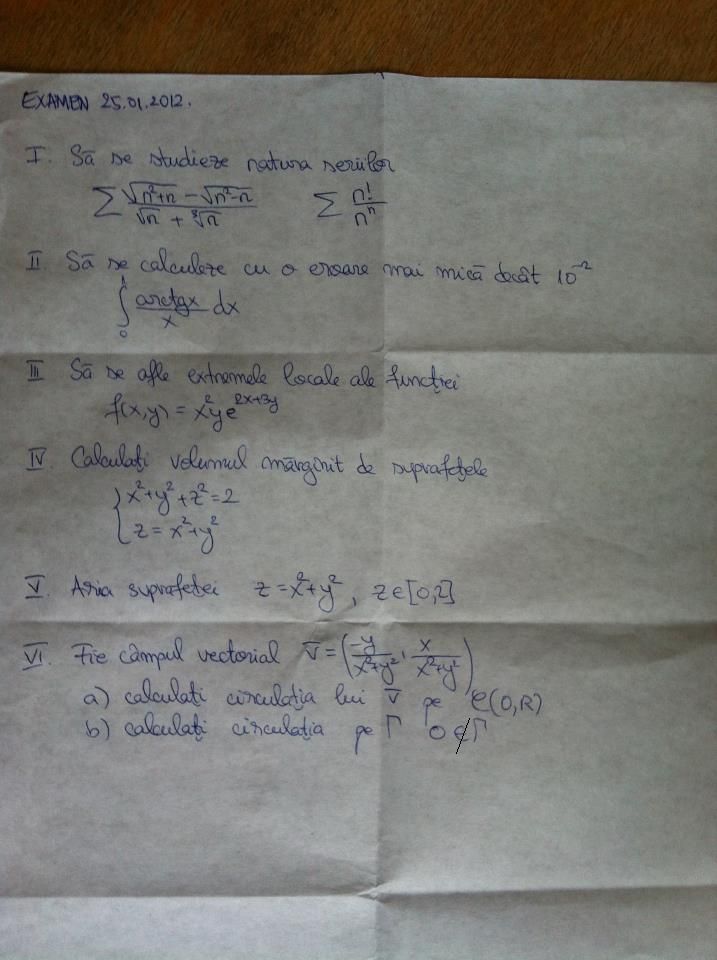 EXAMEN 25.01.2012.
I. Să se studieze natura seriilor
∑ (√(n²+n) − √(n²−n)) / (√n + ∛n)   ∑ n!/nⁿ
II. Să se calculeze cu o eroare mai mică decât 10⁻²
∫₀¹ arctgx/x dx
III Să se afle extremele locale ale funcției
f(x,y) = x²ye^(2x+3y)
IV Calculați volumul mărginit de suprafețele
{ x²+y²+z²=2
z = x²+y²
V. Aria suprafeței z = x²+y², z∈[0,2]
VI. Fie câmpul vectorial V̄ = (−y/(x²+y²), x/(x²+y²))
a) calculați circulația lui V̄ pe C(O,R)
b) calculați circulația pe Γ O∉Γ